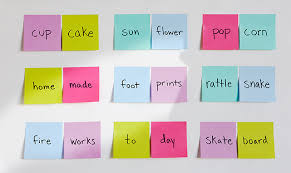 cup cake sun flower pop corn
home made foot prints rattle snake
fire works to day skate board